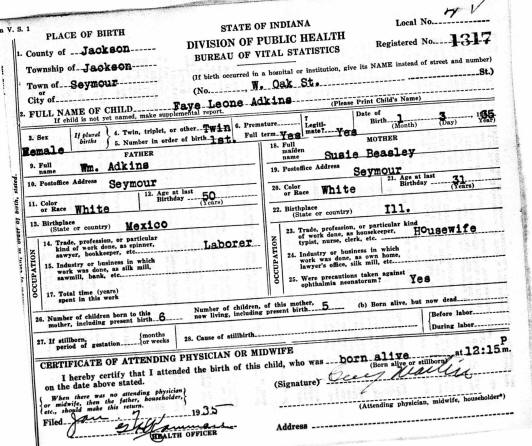 V. S. 1
PLACE OF BIRTH
STATE OF INDIANA
Local No.
1. County of Jackson
DIVISION OF PUBLIC HEALTH
Registered No. 1317
Township of Jackson
BUREAU OF VITAL STATISTICS
Town of Seymour
(If birth occurred in a hospital or institution, give its NAME instead of street and number)
City of
(No. W. Oak St. St.)
2. FULL NAME OF CHILD Faye Leone Adkins (Please Print Child's Name)
If child is not yet named, make supplemental report.
3. Sex Female
If plural births
4. Twin, triplet, or other Twin
5. Number in order of birth 1st.
6. Premature
Full term Yes
7 Legitimate? Yes
Date of Birth 1 3 1935
(Month) (Day) Year
FATHER
9. Full name Wm. Adkins
10. Postoffice Address Seymour
11. Color or Race White
12. Age at last Birthday 50 (Years)
13. Birthplace (State or country) Mexico
OCCUPATION
14. Trade, profession, or particular kind of work done, as spinner, sawyer, bookkeeper, etc. Laborer
15. Industry or business in which work was done, as silk mill, sawmill, bank, etc.
17. Total time (years) spent in this work
MOTHER
18. Full maiden name Susie Beasley
19. Postoffice Address Seymour
20. Color or Race White
21. Age at last Birthday 31 (Years)
22. Birthplace (State or country) Ill.
OCCUPATION
23. Trade, profession, or particular kind of work done, as housekeeper, typist, nurse, clerk, etc. Housewife
24. Industry or business in which work was done, as own home, lawyer's office, silk mill, etc.
25. Were precautions taken against ophthalmia neonatorum? Yes
26. Number of children born to this mother, including present birth 6
Number of children, of this mother, now living, including present birth 5
(b) Born alive, but now dead
27. If stillborn, period of gestation
months or weeks
28. Cause of stillbirth
Before labor
During labor
CERTIFICATE OF ATTENDING PHYSICIAN OR MIDWIFE
I hereby certify that I attended the birth of this child, who was born alive at 12:15 P m.
(Born alive or stillborn)
on the date above stated.
When there was no attending physician or midwife, then the father, householder, etc., should make this return.
(Signature)
(Attending physician, midwife, householder*)
Filed Jan 1935
HEALTH OFFICER
Address